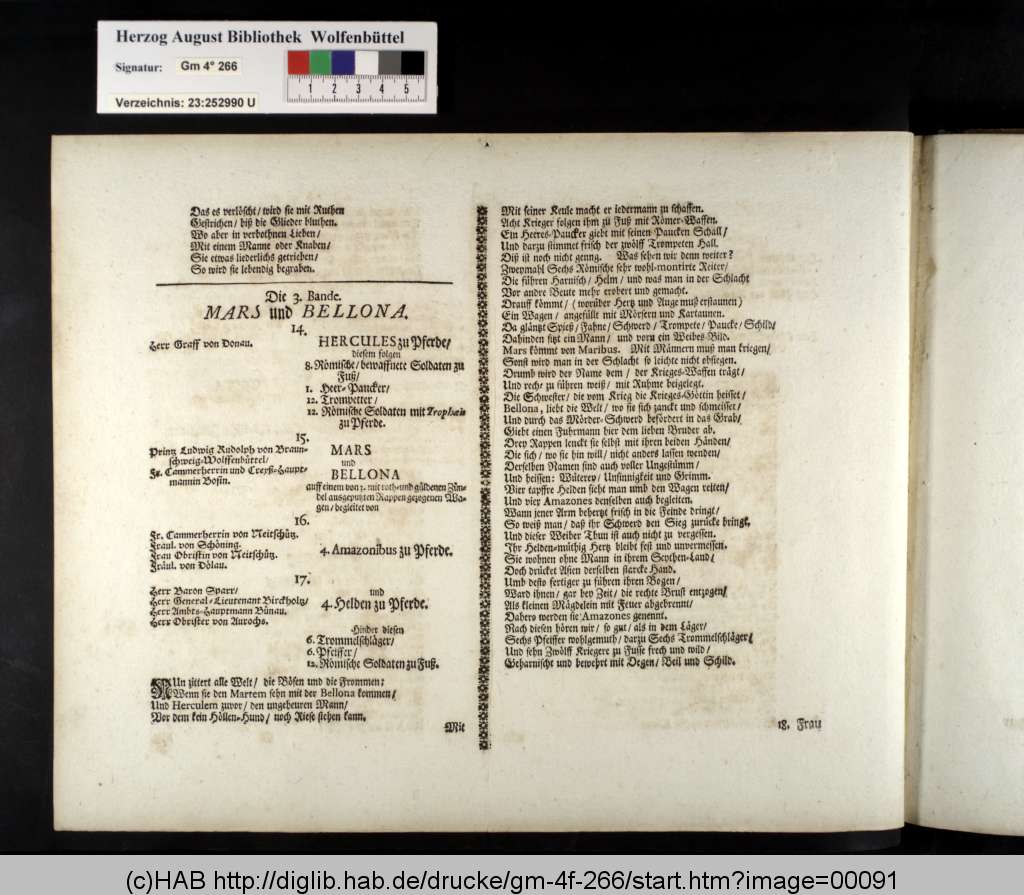 Herzog August Bibliothek Wolfenbüttel
Signatur: Gm 4° 266
Verzeichnis: 23:252990 U
1 2 3 4 5
Das es verlöscht/ wird sie mit Ruthen
Gestrichen/ biß die Glieder bluthen.
Wo aber in verbothnen Lieben/
Mit einem Manne oder Knaben/
Sie etwas liederlichs getrieben/
So wird sie lebendig begraben.
Die 3. Bande.
MARS und BELLONA.
14.
Herr Graff von Donau.
HERCULES zu Pferde/
diesem folgen
8. Römische/ bewaffnete Soldaten zu
Fuß/
1. Heer-Paucker/
12. Trompetter/
12. Römische Soldaten mit Trophæis
zu Pferde.
15.
Printz Ludwig Rudolph von Braun-
schweig-Wolffenbüttel/
Fr. Cammerherrin und Creyß-Haupt-
mannin Bosin.
MARS
und
BELLONA
auff einem von 3. mit roth-und güldenen Zün-
del ausgeputzten Rappen gezogenen Wa-
gen/ begleitet von
16.
Fr. Cammerherrin von Neitschütz.
Fräul. von Schöning.
Frau Obristin von Neitschütz.
Fräul. von Dölau.
4. Amazonibus zu Pferde.
17.
Herr Baron Sparr/
Herr General-Lieutenant Birckholtz/
Herr Ambts-Hauptmann Bünau.
Herr Obrister von Aurochs.
und
4. Helden zu Pferde.
Hinder diesen
6. Trommelschläger/
6. Pfeiffer/
12. Römische Soldaten zu Fuß.
NUn zittert alle Welt/ die Bösen und die Frommen;
Wenn sie den Martem sehn mit der Bellona kommen/
Und Herculem zuvor/ den ungeheuren Mann/
Vor dem kein Höllen-Hund/ noch Riese stehen kann.
Mit
Mit seiner Keule macht er iedermann zu schaffen.
Acht Krieger folgen ihm zu Fuß mit Römer-Waffen.
Ein Heeres-Paucker giebt mit seinen Paucken Schall/
Und darzu stimmet frisch der zwölff Trompeten Hall.
Diß ist noch nicht genug. Was sehen wir denn weiter?
Zweymahl Sechs Römische sehr wohl-montirte Reiter/
Die führen Harnisch/ Helm/ und was man in der Schlacht
Vor andre Beute mehr erobert und gemacht.
Drauff kömmt/ (worüber Hertz und Auge muß erstaunen)
Ein Wagen/ angefüllt mit Mörsern und Kartaunen.
Da gläntzt Spieß/ Fahne/ Schwerd/ Trompete/ Paucke/ Schild/
Dahinden sitzt ein Mann/ und vorn ein Weibes-Bild.
Mars kömmt von Maribus. Mit Männern muß man kriegen/
Sonst wird man in der Schlacht so leichte nicht obsiegen.
Drumb wird der Name dem/ der Krieges-Waffen trägt/
Und recht zu führen weiß/ mit Ruhme beigelegt.
Die Schwester/ die vom Krieg die Krieges-Göttin heisset/
Bellona, liebt die Welt/ wo sie sich zanckt und schmeisset/
Und durch das Mörder-Schwerd befördert in das Grab/
Giebt einen Fuhrmann hier dem lieben Bruder ab.
Drey Rappen lenckt sie selbst mit ihren beiden Händen/
Die sich/ wo sie hin will/ nicht anders lassen wenden/
Derselben Namen sind auch voller Ungestümm/
Und heissen: Wüterey/ Unsinnigkeit und Grimm.
Vier tapffre Helden sieht man umb den Wagen reiten/
Und vier Amazones denselben auch begleiten.
Wann jener Arm behertzt frisch in die Feinde dringt/
So weiß man/ daß ihr Schwerd den Sieg zurücke bringt.
Und dieser Weiber Thun ist auch nicht zu vergessen.
Ihr Helden-müthig Hertz bleibt fest und unvermessen.
Sie wohnen ohne Mann in ihrem Scythen-Land/
Doch drücket Asien derselben starcke Hand.
Umb desto fertiger zu führen ihren Bogen/
Ward ihnen/ gar bey Zeit/ die rechte Brust entzogen/
Als kleinen Mägdelein mit Feuer abgebrennt/
Dahero werden sie Amazones genennt.
Nach diesen hören wir/ so gut/ als in dem Läger/
Sechs Pfeiffer wohlgemuth/ darzu Sechs Trommelschläger/
Und sehn Zwölff Kriegere zu Fusse frech und wild/
Geharnischt und bewehrt mit Degen/ Beil und Schild.
18. Frau
(c)HAB http://diglib.hab.de/drucke/gm-4f-266/start.htm?image=00091